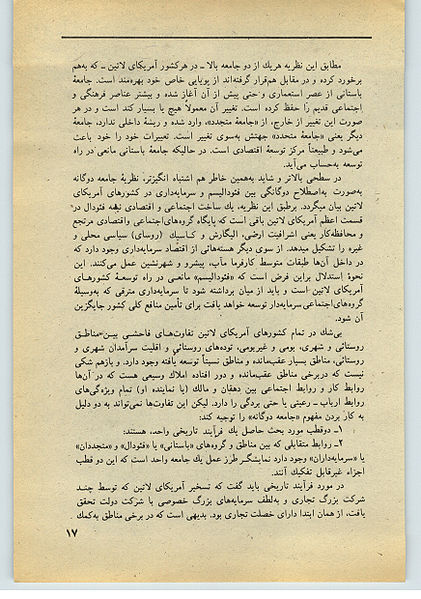 مطابق این نظریه هریك از دو جامعه بالا ـ در هرکشور آمریکای لاتین ـ که به‌هم
برخورد کرده و در مقابل هم‌قرار گرفته‌اند از پویایی خاص خود بهره‌مند است. جامعهٔ
باستانی از عصر استعماری و حتی پیش از آن آغاز شده و بیشتر عناصر فرهنگی و
اجتماعی قدیم را حفظ کرده است. تغییر آن معمولاً هیچ یا بسیار کند است و در هر
صورت این تغییر از خارج، از «جامعهٔ متجدد»، وارد شده و ریشهٔ داخلی ندارد، جامعهٔ
دیگر یعنی «جامعهٔ متجدد» جهتش به‌سوی تغییر است. تغییرات خود را خود باعث
می‌شود و طبیعتاً مرکز توسعهٔ اقتصادی است. در حالیکه جامعهٔ باستانی مانعی در راه
توسعه به‌حساب می‌آید.
در سطحی بالاتر و شاید به‌همین خاطر هم اشتباه انگیزتر، نظریهٔ جامعه دوگانه
به‌صورت به‌اصطلاح دوگانگی بین فئودالیسم و سرمایه‌داری در کشورهای آمریکای
لاتین بیان میگردد. برطبق این نظریه، یك ساخت اجتماعی و اقتصادی نیمه فئودال در
قسمت اعظم آمریکای لاتین باقی است که پایگاه گروه‌های‌اجتماعی واقتصادی مرتجع
و محافظه‌کار یعنی اشرافیت ارضی، الیگارش و کاسیك (روسای) سیاسی محلی و
غیره را تشکیل میدهد. از سوی دیگر هسته‌هائی از اقتصاد سرمایه‌داری وجود دارد که
در داخل آن‌ها طبقات متوسط کارفرما مآب، پیشرو و شهرنشین عمل می‌کنند. این
نحوهٔ استدلال براین فرض است که «فئودالیسم» مانعی در راه توسعهٔ کشورهای
آمریکای لاتین است و باید از میان برداشته شود تا سرمایه‌داری مترقی که به‌وسیلهٔ
گروه‌های‌اجتماعی‌سرمایه‌دار توسعه خواهد یافت برای تأمین منافع کلی کشور جایگزین
آن شود.
بی‌شك در تمام کشورهای آمریکای لاتین تفاوت‌های فاحشی بین مناطق
روستائی و شهری، بومی و غیربومی، توده‌های روستائی و اقلیت سرآمدان شهری و
روستائی، مناطق بسیار عقب‌مانده و مناطق نسبتاً توسعه یافته وجود دارد. و بازهم شکی
نیست که دربرخی مناطق عقب‌مانده و دور افتاده املاك وسیعی هست که در آن‌ها
روابط کار و روابط اجتماعی بین دهقان و مالك (یا نماینده او) تمام ویژگی‌های
روابط ارباب ـ رعیتی یا حتی بردگی را دارد. لیکن این تفاوت‌ها نمی‌تواند به دو دلیل
به کار بردن مفهوم «جامعه دوگانه» را توجیه کند:
۱ـ دوقطب مورد بحث حاصل یك فرآیند تاریخی واحد، هستند:
۲ـ روابط متقابلی که بین مناطق و گروه‌های «باستانی» یا «فئودال» و «متجددان»
یا «سرمایه‌داران» وجود دارد نمایشگر طرز عمل یك جامعه واحد است که این دو قطب
اجزاء غیرقابل تفکیك آنند.
در مورد فرآیند تاریخی باید گفت که تسخیر آمریکای لاتین که توسط چند
شرکت بزرگ تجاری و به‌لطف سرمایه‌های بزرگ خصوصی با شرکت دولت تحقق
یافت، از همان ابتدا دارای خصلت تجاری بود. بدیهی است که در برخی مناطق به‌کمك
۱۷